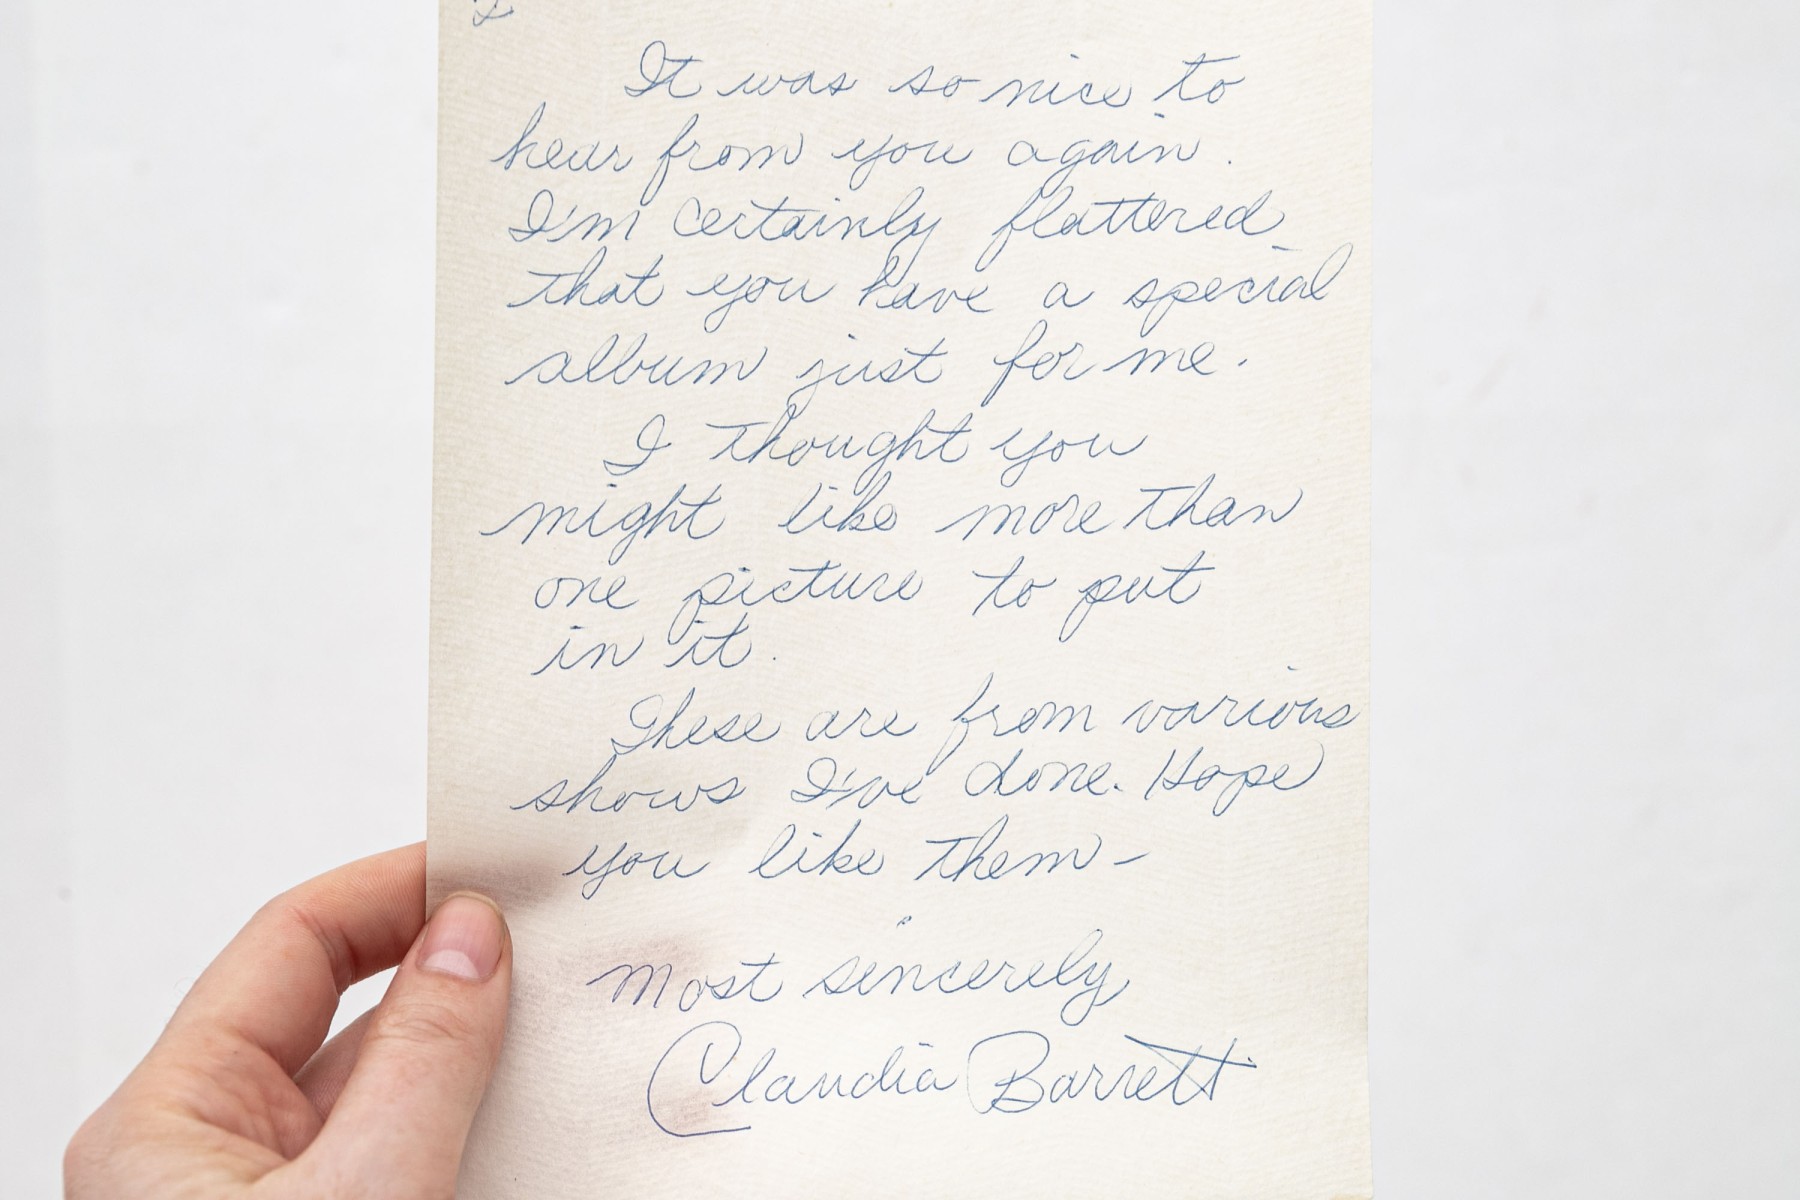 It was so nice to
hear from you again.
I'm certainly flattered
that you have a special
album just for me.
I thought you
might like more than
one picture to put
in it.
These are from various
shows I've done. Hope
you like them -
Most sincerely,
Claudia Barrett